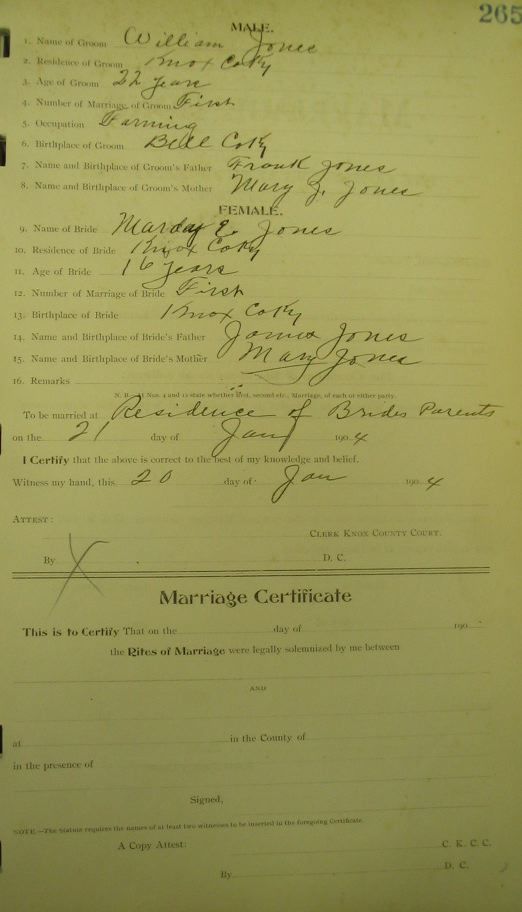 265
MALE.
1. Name of Groom William Jones
2. Residence of Groom Knox Co Ky
3. Age of Groom 22 years
4. Number of Marriage, of Groom First
5. Occupation Farming
6. Birthplace of Groom Bell Co Ky
7. Name and Birthplace of Groom's Father Frank Jones
8. Name and Birthplace of Groom's Mother Mary J. Jones
FEMALE.
9. Name of Bride E. Jones
10. Residence of Bride Knox Co Ky
11. Age of Bride 16 years
12. Number of Marriage of Bride First
13. Birthplace of Bride Knox Co Ky
14. Name and Birthplace of Bride's Father James Jones
15. Name and Birthplace of Bride's Mother Mary Jones
16. Remarks
N. B.—At Nos. 4 and 12 state whether first, second etc., Marriage, of each or either party.
To be married at Residence of Brides Parents
on the 21 day of Jany 1904
I Certify that the above is correct to the best of my knowledge and belief.
Witness my hand, this 20 day of Jan 1904
ATTEST:
CLERK KNOX COUNTY COURT.
By X D. C.
Marriage Certificate
This is to Certify That on the day of 190
the Rites of Marriage were legally solemnized by me between
AND
at in the County of
in the presence of
Signed,
NOTE.—The Statute requires the names of at least two witnesses to be inserted in the foregoing Certificate.
A Copy Attest: C. K. C. C.
By D. C.